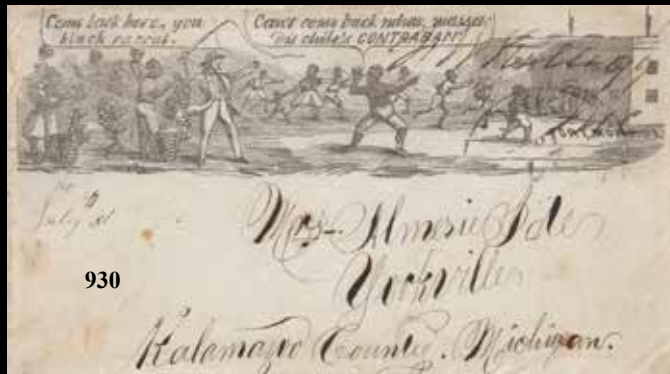 Come back here, you
black rascal.
Can't come back nohow, massa;
Dis chile's CONTRABAN'
July 31
Mrs. Almerie Ide
Yorkville
Kalamazoo County. Michigan.
930